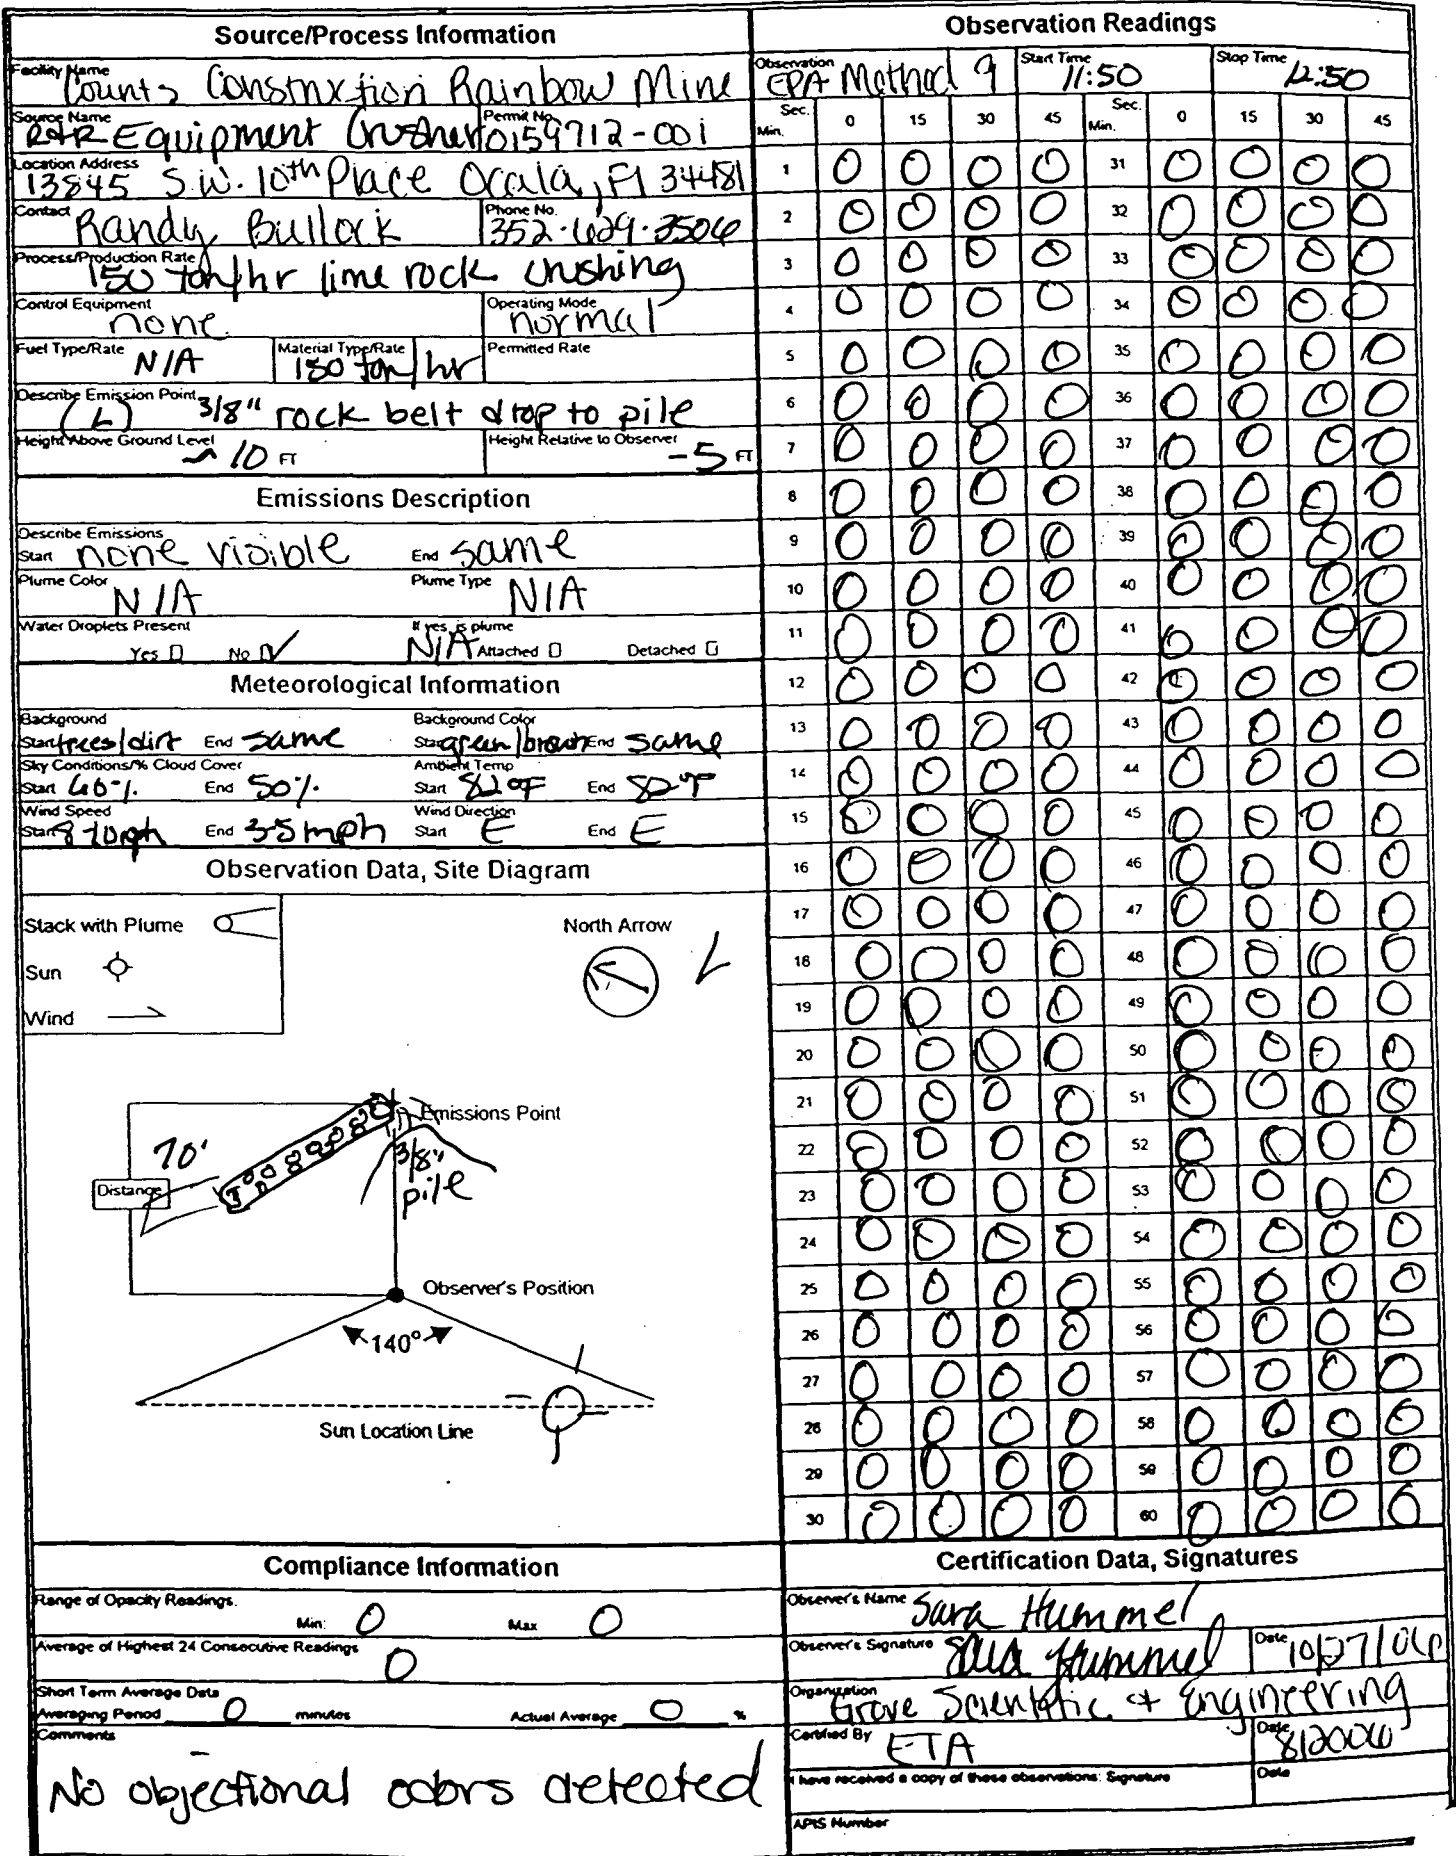 Source/Process Information
Facility Name Counts Construction Rainbow Mine
Source Name R&R Equipment Crusher Permit No. 0159712-001
Location Address 13845 S.W. 10th Place Ocala, Fl 34481
Contact Randy Bullock Phone No. 352.629.3506
Process/Production Rate 150 ton/hr lime rock crushing
Control Equipment none Operating Mode normal
Fuel Type/Rate N/A Material Type/Rate 150 ton/hr Permitted Rate
Describe Emission Point (L) 3/8" rock belt drop to pile
Height Above Ground Level ~10 FT Height Relative to Observer -5 FT
Emissions Description
Describe Emissions
Start none visible End same
Plume Color N/A Plume Type N/A
Water Droplets Present If yes, is plume
Yes No ✓ N/A Attached Detached
Meteorological Information
Background Background Color
Start trees/dirt End same Start green/brown End same
Sky Conditions/% Cloud Cover Ambient Temp
Start 60% End 50% Start 82°F End 82°F
Wind Speed Wind Direction
Start 8-10mph End 3-5mph Start E End E
Observation Data, Site Diagram
Stack with Plume
North Arrow
Sun
Wind
Emissions Point
70'
3/8"
pile
Distance
Observer's Position
140°
Sun Location Line
Compliance Information
Range of Opacity Readings.
Min: 0 Max 0
Average of Highest 24 Consecutive Readings 0
Short Term Average Data
Averaging Period 0 minutes Actual Average 0 %
Comments
No objectional odors detected
Observation Readings
Observation EPA Method 9 Start Time 11:50 Stop Time 12:50
Sec. 0 15 30 45 Sec. 0 15 30 45
Min. Min.
1 0 0 0 0 31 0 0 0 0
2 0 0 0 0 32 0 0 0 0
3 0 0 0 0 33 0 0 0 0
4 0 0 0 0 34 0 0 0 0
5 0 0 0 0 35 0 0 0 0
6 0 0 0 0 36 0 0 0 0
7 0 0 0 0 37 0 0 0 0
8 0 0 0 0 38 0 0 0 0
9 0 0 0 0 39 0 0 0 0
10 0 0 0 0 40 0 0 0 0
11 0 0 0 0 41 0 0 0 0
12 0 0 0 0 42 0 0 0 0
13 0 0 0 0 43 0 0 0 0
14 0 0 0 0 44 0 0 0 0
15 0 0 0 0 45 0 0 0 0
16 0 0 0 0 46 0 0 0 0
17 0 0 0 0 47 0 0 0 0
18 0 0 0 0 48 0 0 0 0
19 0 0 0 0 49 0 0 0 0
20 0 0 0 0 50 0 0 0 0
21 0 0 0 0 51 0 0 0 0
22 0 0 0 0 52 0 0 0 0
23 0 0 0 0 53 0 0 0 0
24 0 0 0 0 54 0 0 0 0
25 0 0 0 0 55 0 0 0 0
26 0 0 0 0 56 0 0 0 0
27 0 0 0 0 57 0 0 0 0
28 0 0 0 0 58 0 0 0 0
29 0 0 0 0 59 0 0 0 0
30 0 0 0 0 60 0 0 0 0
Certification Data, Signatures
Observer's Name Sara Hummel
Observer's Signature Sara Hummel Date 10/27/06
Organization Grove Scientific & Engineering
Certified By ETA Date 8/2006
I have received a copy of these observations: Signature Date
APIS Number